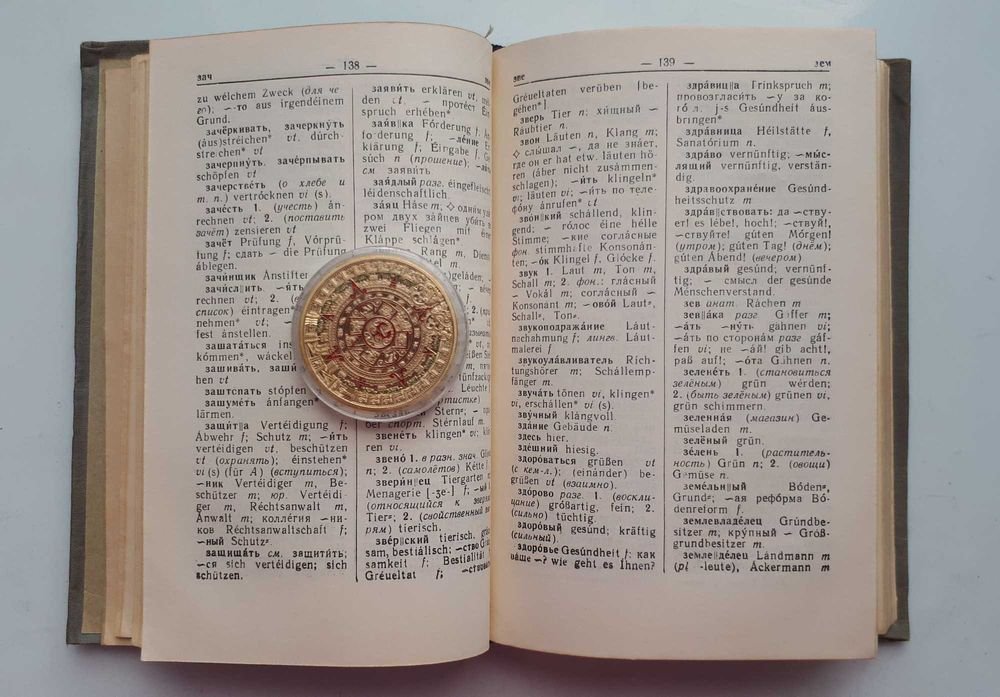 — 138 —
зач
зы
zu wélchem Zweck (для че
го); ∼-то aus irgendéinem
Grund.
зачёркивать, зачеркнуть
(áus)streichen* vt. dúrch-
streichen* vt
зачерпнуть, зачёрпывать
schöpfen vt
зачерстветь (о хлебе и
т. п.) vertrócknen vi (s).
зачесть 1. (учесть) án-
rechnen vt; 2. (поставить
зачёт) zensieren vt
зачёт Prüfung f, Vórprü-
fung f; сдать ∼ die Prüfung
áblegen.
зачинщик Anstifter
зачислить
rechnen vt;
список) eintragen*
nehmen* vt;
fest ánstellen.
зашататься ins
kómmen*, wáckel
зашивать, заши
nähen vt
заштопать stópfen
зашуметь ánfangen*
lärmen.
защит||а Vertéidigung f;
Ábwehr f; Schutz m; ∼ить
vertéidigen vt. beschützen
vt (охранять); éinstehen*
vi (s) (für A) (вступиться);
∼ник Vertéidiger m, Be-
schützer m; юр. Vertéidi-
ger m, Réchtsanwalt m,
Ánwalt m; коллегия ∼ни-
ков Réchtsanwaltschaft f;
∼ный Schutz-
защищать см. защитить;
∼ся sich vertéidigen; sich
schützen.
заявить erklären vt,
den vt. ∼ протест Éin
spruch erhében*
заяв||ка Fórderung f, Án
forderung f; ∼ление Er
klärung f; Éingabe f, Ge
súch n (прошение);
см заявить
заядлый разг. éingefleisch
léidenschaftlich.
заяц Háse m; ◇ одним уда
ром двух зайцев убить
zwei Fliegen mit éiner
Kláppe schlágen*
Rang m, Dien
tel m.
geláden;
tünfzack
Léuchte
Stern-; ∼
бег спорт. Stérnlauf m.
звенеть klingen* vi, läu
ren vi.
звено 1. в разн. знач. Glied
n; 2. (самолётов) Kétte f
зверин||ец Tiergarten m,
Menagerie [-ʒe-] f;
(относящийся к зверям)
Tier-; 2. (свойственный зве
рям) tierisch.
звер||ский tierisch, gráu
sam, bestiálisch; ∼ство Gráu
samkeit f; Bestialität f,
Gréueltat f; ∼ствовать
— 139 —
зве
зем
Gréueltaten verüben [be-
géhen*]
зверь Tier n; хищный ∼
Ráubtier n.
звон Läuten n, Klang m;
◇ слышал ∼, да не знает,
где он er hat etw. läuten hö-
ren (áber nicht zusámmen-
schlagen); ∼ить klingeln*
vi; läuten vi; ∼ить по теле-
фону ánrufen* vt
звон||кий schállend, klin-
gend; ∼ голос éine hélle
Stimme; ∼кие согласные
фон. stimmháfte Konsonán-
ten; ∼ок Klingel f, Glócke f.
звук 1. Laut m, Ton m,
Schall m; 2. фон.: гласный
∼ Vokál m; согласный ∼
Konsonánt m; ∼овой Laut-,
Schall-, Ton-.
звукоподражание Láut-
nachahmung f; лингв. Láut-
malerei f
звукоулавливатель Rich-
tungshörer m; Schállemp-
fänger m.
звучать tönen vi, klingen*
vi, erschállen* vi (s).
звучный klángvoll.
здание Gebäude n.
здесь hier.
здешний hiesig.
здороваться grüßen vt
(с кем-л.); (einánder) be-
grüßen vt (взаимно).
здорово разг. 1. (воскли-
цание) großártig, fein; 2.
(сильно) tüchtig.
здоровый gesúnd; kräftig
(сильный).
здоровье Gesúndheit f; как
ваше ∼? wie geht es Ihnen?
здравиц||а Trinkspruch m;
провозгласить ∼у за ко-
го л. j-s Gesúndheit áus-
bringen*
здравница Héilstätte f,
Sanatórium n.
здраво vernünftig, ∼мыс-
лящий vernünftig, verstän-
dig.
здравоохранение Gesúnd-
heitsschutz m
здрав||ствовать: да ∼ству-
ет! es lébe!, hoch!; ∼ствуй!,
∼ствуйте! gúten Mórgen!
(утром); gúten Tag! (днём);
gúten Ábend! (вечером)
здравый gesúnd; vernünf-
tig; ∼ смысл der gesúnde
Ménschenverstand.
зев анат. Ráchen m
зев||ака разг Gáffer m;
∼ать ∼нуть gähnen vi;
∼ать по сторонам gáf-
fen vi; не ∼ай! gib acht!,
paß auf!; ∼ота Gähnen n.
зеленеть 1. (становиться
зелёным) grün wérden;
2. (быть зелёным) grünen vi,
grün schimmern.
зеленная (магазин) Ge-
müseladen m.
зелёный grün.
зелень 1. (раститель-
ность) Grün n; 2. (овощи)
Gemüse n.
земельн||ый Bóden-,
Grund-; ∼ая реформа Bó-
denreform f.
землевладелец Grúndbe-
sitzer m; крупный ∼ Gróß-
grundbesitzer m.
земле||делец Lándmann m
(pl -leute), Áckermann m